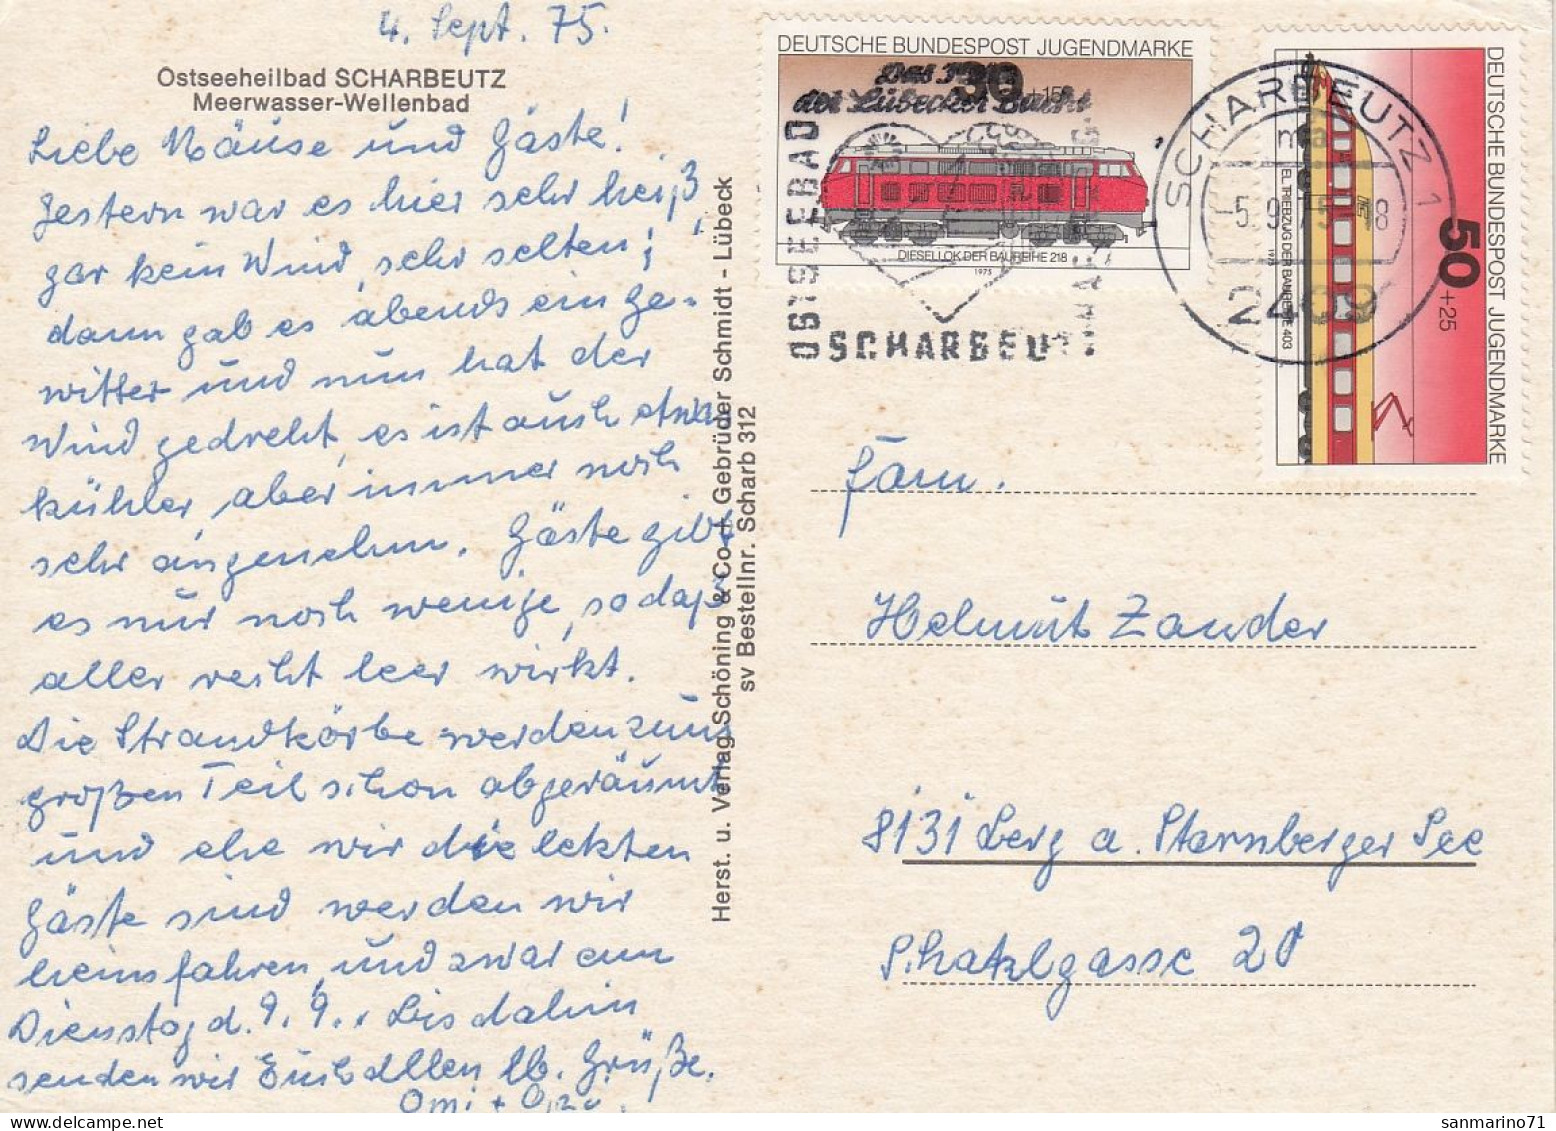 4. Sept. 75.
Ostseeheilbad SCHARBEUTZ
Meerwasser-Wellenbad
Liebe Mäuse und Gäste!
Gestern war es hier sehr heiß,
gar kein Wind, sehr selten;
dann gab es abends ein Ge-
witter und nun hat der
Wind gedreht, es ist auch etwas
kühler, aber immer noch
sehr angenehm. Gäste gibt
es nur noch wenige, so daß
aller recht leer wirkt.
Die Strandkörbe werden zum
großen Teil schon abgeräumt
und ehe wir die letzten
Gäste sind werden wir
heimfahren, und zwar am
Dienstag d. 9. 9.. Bis dahin
senden wir Euch allen lb. Grüße.
Omi +
Herst. u. Verlag Schöning & Co + Gebrüder Schmidt - Lübeck
sv Bestellnr. Scharb 312
DEUTSCHE BUNDESPOST JUGENDMARKE
30 +15
DIESELLOK DER BAUREIHE 218
1975
Das
der Lübecker Bucht
OSTSEEBAD
SCHARBEUTZ
DEUTSCHE BUNDESPOST JUGENDMARKE
50 +25
EL. TRIEBZUG DER BAUREIHE 403
1975
SCHARBEUTZ 1
ma
-5.9.75-18
2409
Fam.
Helmut Zander
8131 Berg a. Starnberger See
Schatzlgasse 20
sanmarino71